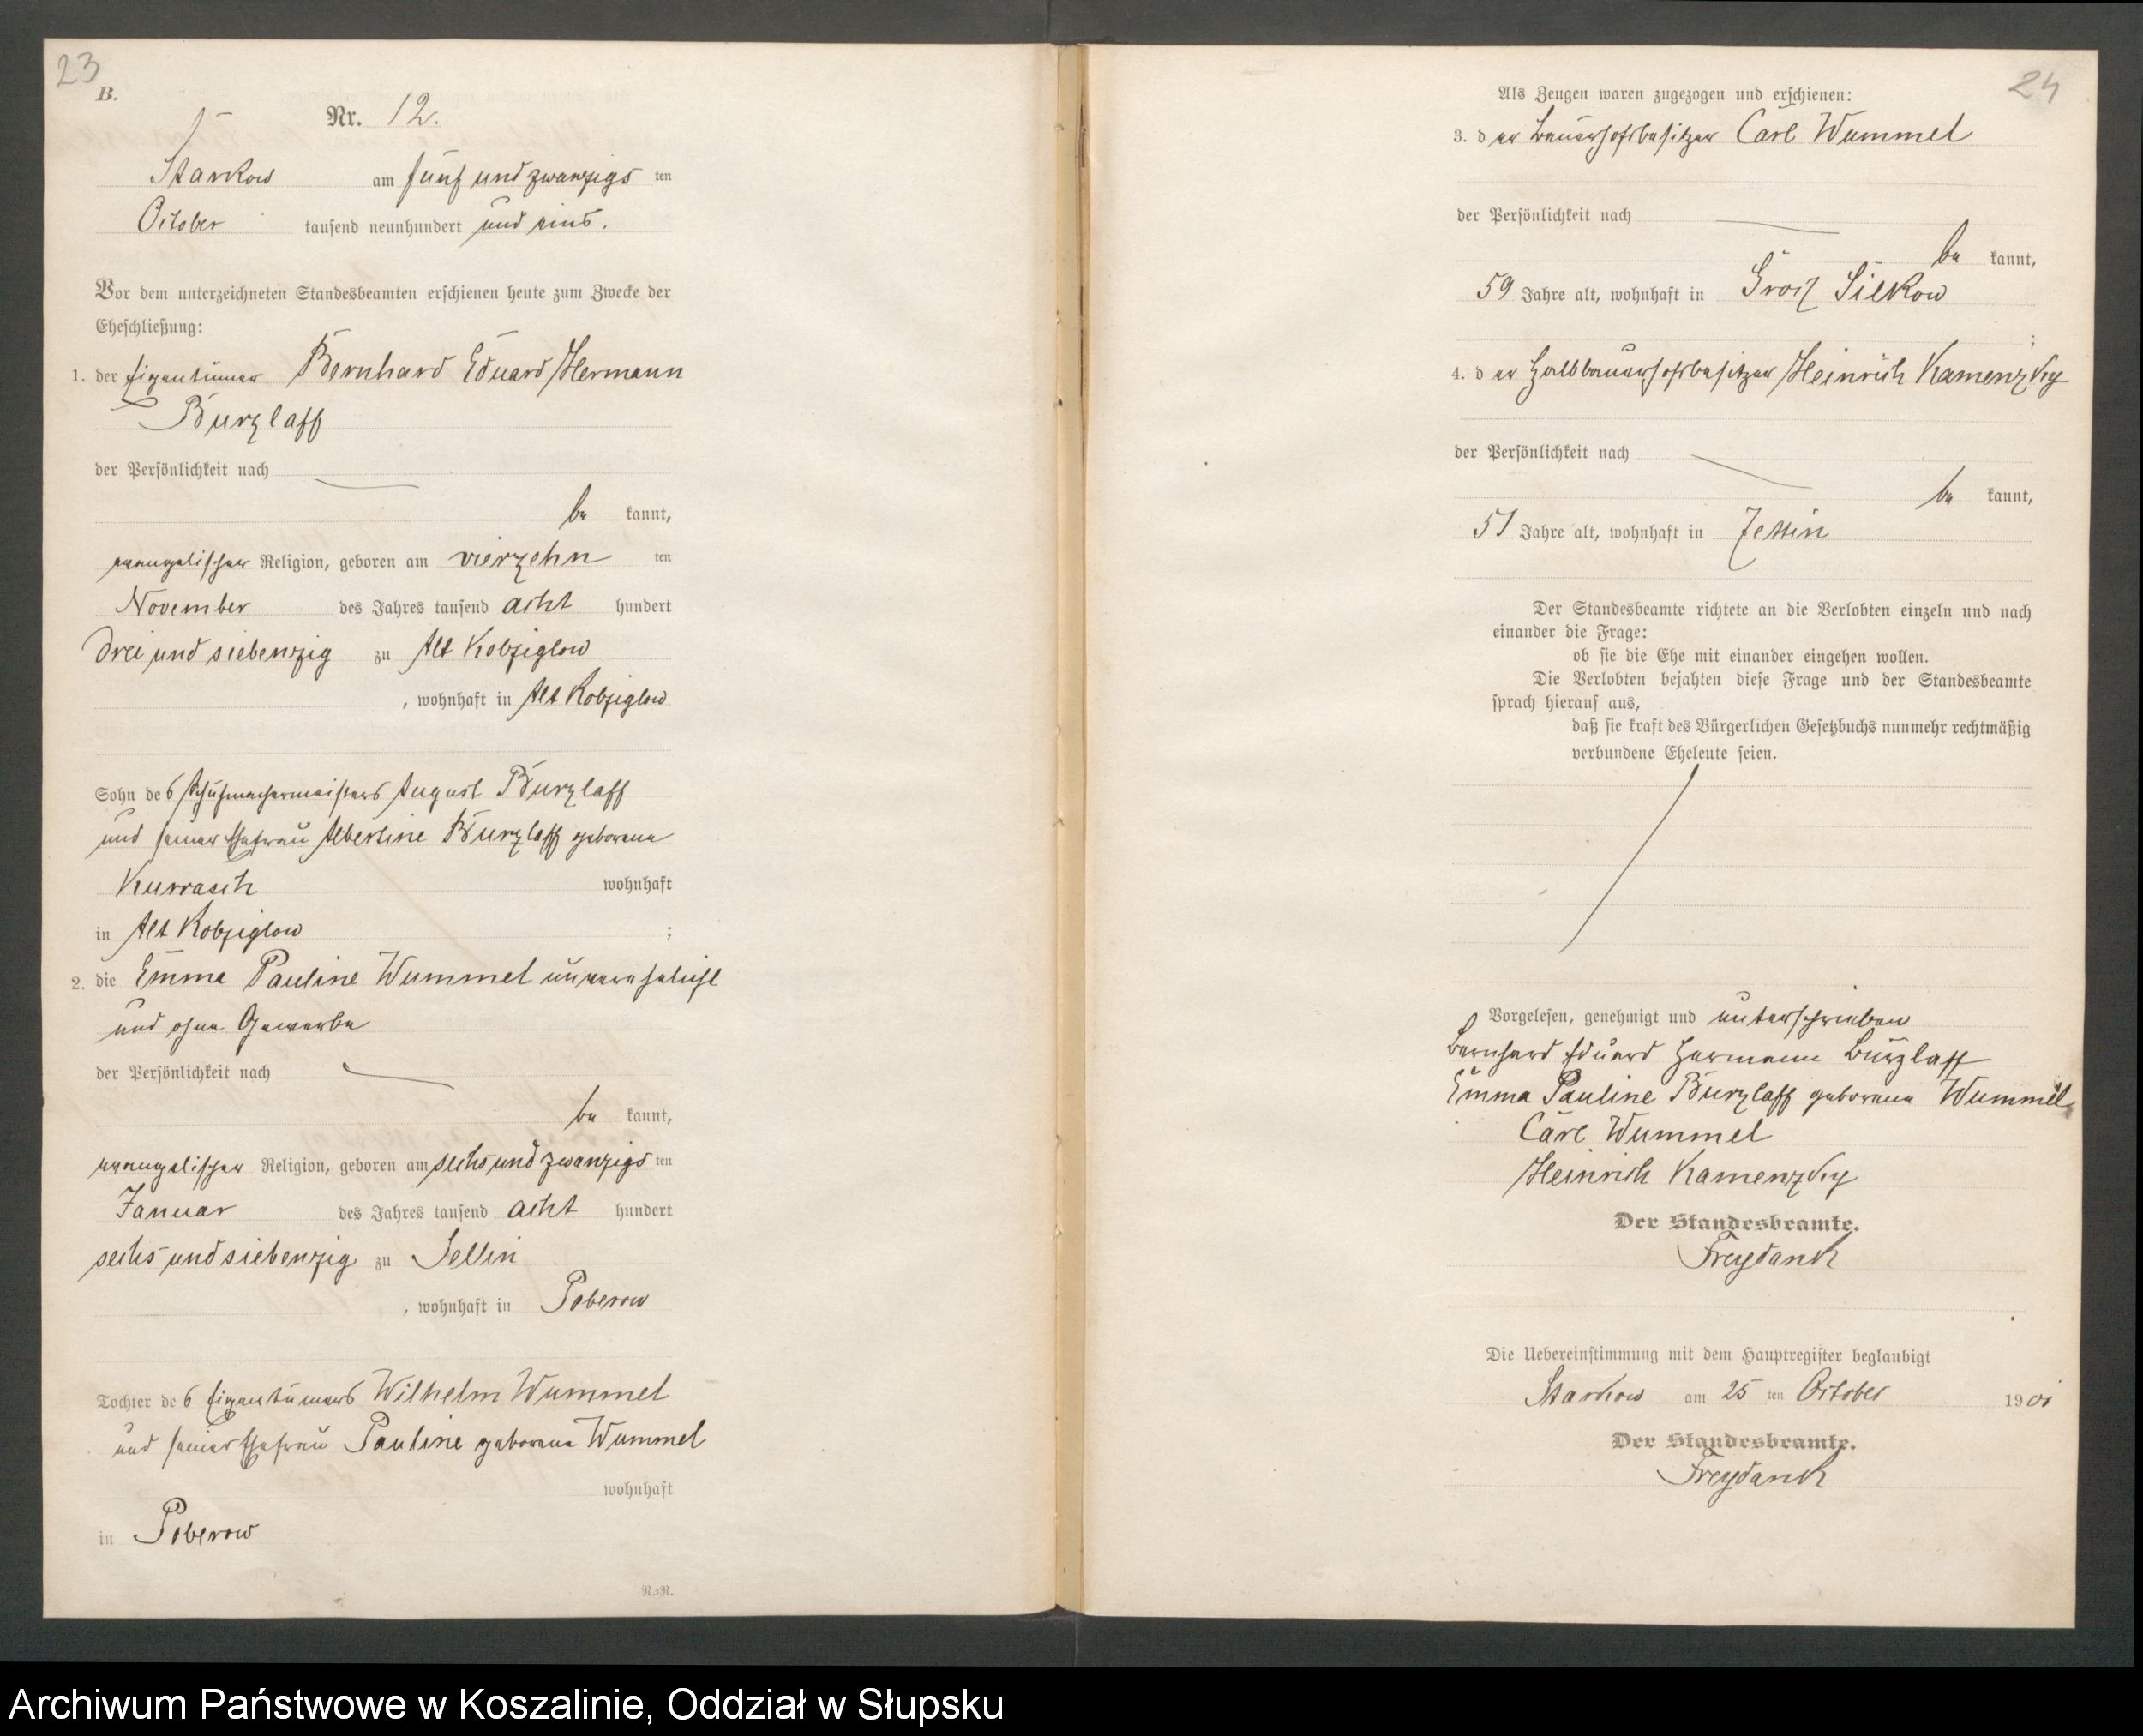 23
B.
Nr. 12.
Starkow am fünf und zwanzigs ten
October tausend neunhundert und eins.
Vor dem unterzeichneten Standesbeamten erschienen heute zum Zwecke der
Eheschließung:
1. der Eigentümer Bernhard Eduard Hermann
Burzlaff
der Persönlichkeit nach
be kannt,
evangelischer Religion, geboren am vierzehn ten
November des Jahres tausend acht hundert
drei und siebenzig zu Alt Kolziglow
, wohnhaft in Alt Kolziglow
Sohn des Schuhmachermeisters August Burzlaff
und seiner Ehefrau Albertine Burzlaff geborene
Kurrasch wohnhaft
in Alt Kolziglow ;
2. die Emma Pauline Wummel unverehelicht
und ohne Gewerbe
der Persönlichkeit nach
be kannt,
evangelischer Religion, geboren am sechs und zwanzigs ten
Januar des Jahres tausend acht hundert
sechs und siebenzig zu Sellin
, wohnhaft in Poberow
Tochter des Eigentümers Wilhelm Wummel
und seiner Ehefrau Pauline geborene Wummel
wohnhaft
in Poberow
N.=N.
24
Als Zeugen waren zugezogen und erschienen:
3. d er Bauerhofsbesitzer Carl Wummel
der Persönlichkeit nach
be kannt,
59 Jahre alt, wohnhaft in Groß Silkow
;
4. d er Halbbauerhofsbesitzer Heinrich Kamenzky
der Persönlichkeit nach
be kannt,
51 Jahre alt, wohnhaft in
Der Standesbeamte richtete an die Verlobten einzeln und nach
einander die Frage:
ob sie die Ehe mit einander eingehen wollen.
Die Verlobten bejahten diese Frage und der Standesbeamte
sprach hierauf aus,
daß sie kraft des Bürgerlichen Gesetzbuchs nunmehr rechtmäßig
verbundene Eheleute seien.
Vorgelesen, genehmigt und unterschrieben
Bernhard Eduard Hermann Burzlaff
Emma Pauline Burzlaff geborene Wummel
Carl Wummel
Heinrich Kamenzky
Der Standesbeamte.
Freydank
Die Uebereinstimmung mit dem Hauptregister beglaubigt
Starkow am 25 ten October 1901
Der Standesbeamte.
Freydank
Archiwum Państwowe w Koszalinie, Oddział w Słupsku